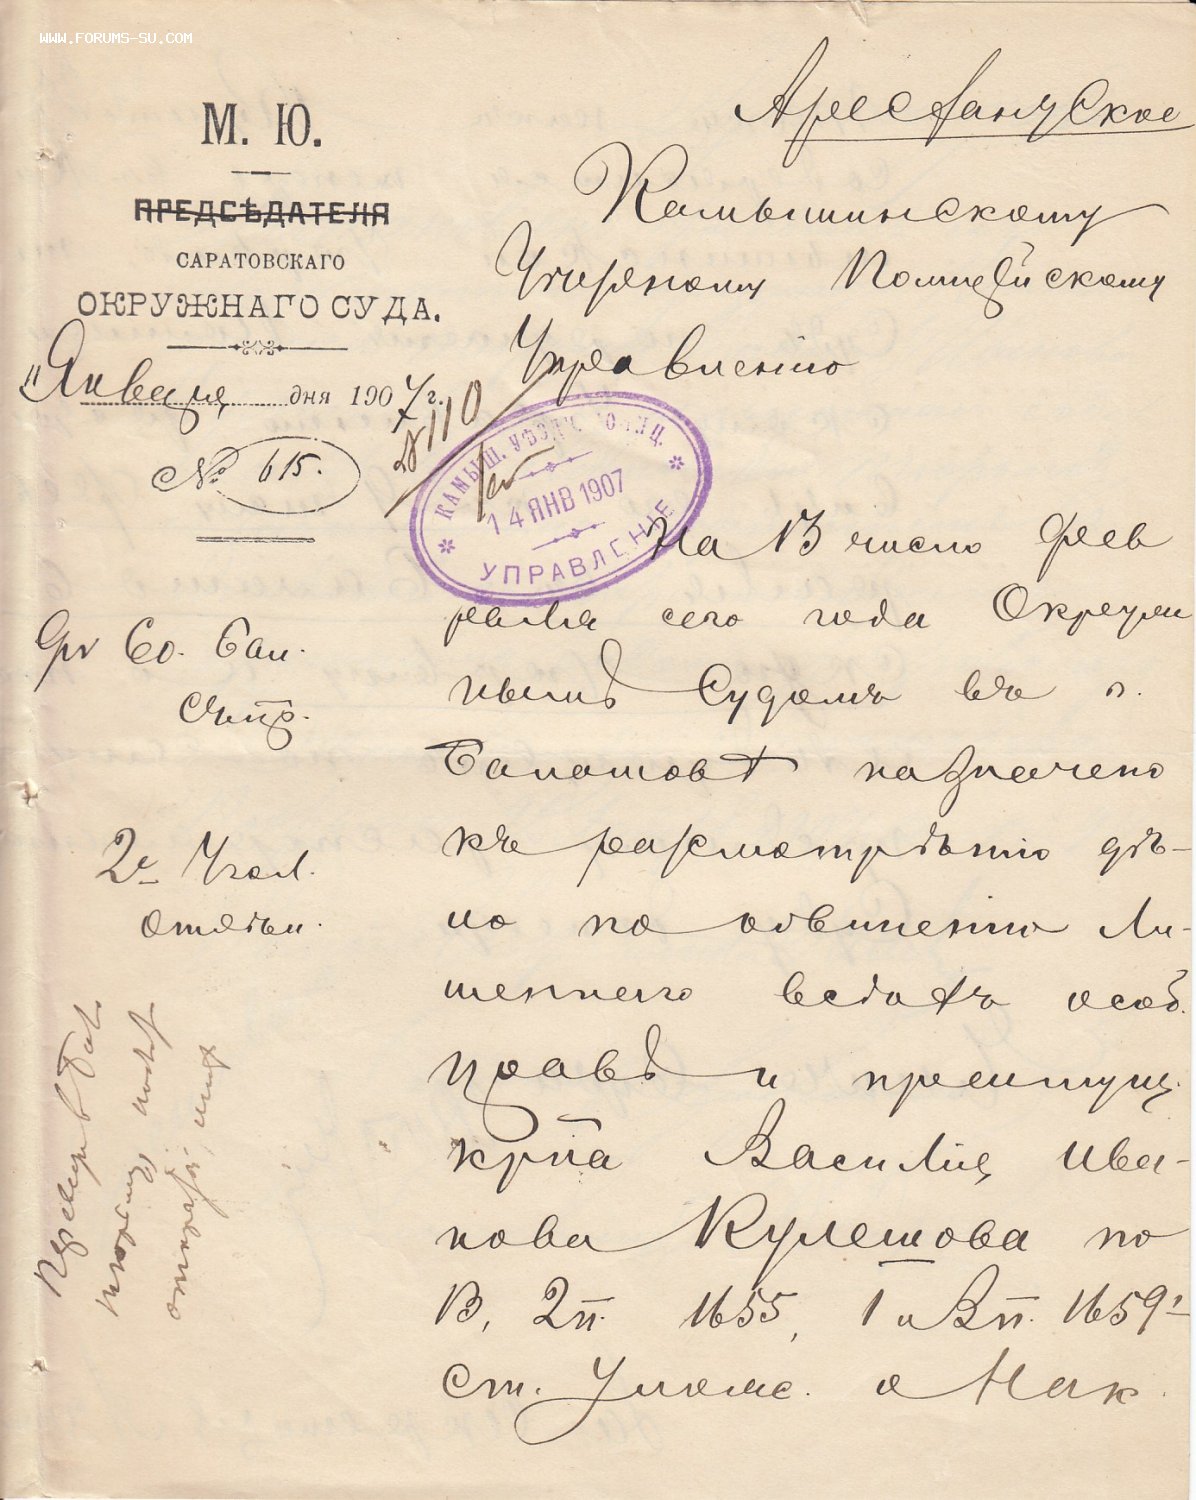 WWW.FORUMS-SU.COM
М. Ю.
ПРЕДСѢДАТЕЛЯ
САРАТОВСКАГО
ОКРУЖНАГО СУДА.
Января дня 1907 г.
№ 615.
Арестантское
Камышинскому
Уѣздному Полицейскому
Управленію
№ 110
КАМЫШ. УѢЗДН. ПОЛИЦ.
14 ЯНВ 1907
УПРАВЛЕНІЕ
На 13 число фев
раля сего года Окруж
нымъ Судомъ въ г.
Балашовѣ назначено
къ разсмотрѣнію дѣ-
ло по обвиненію Ли-
шеннаго всѣхъ особ.
правъ и преимущ.
кр-на Василія Ива-
нова Кулешова по
13, 2 п. 1655, 1 и 3 п. 1659¹
ст. Улож. о Нак.
Со. Бал.
2е Угол.
Отдѣл.